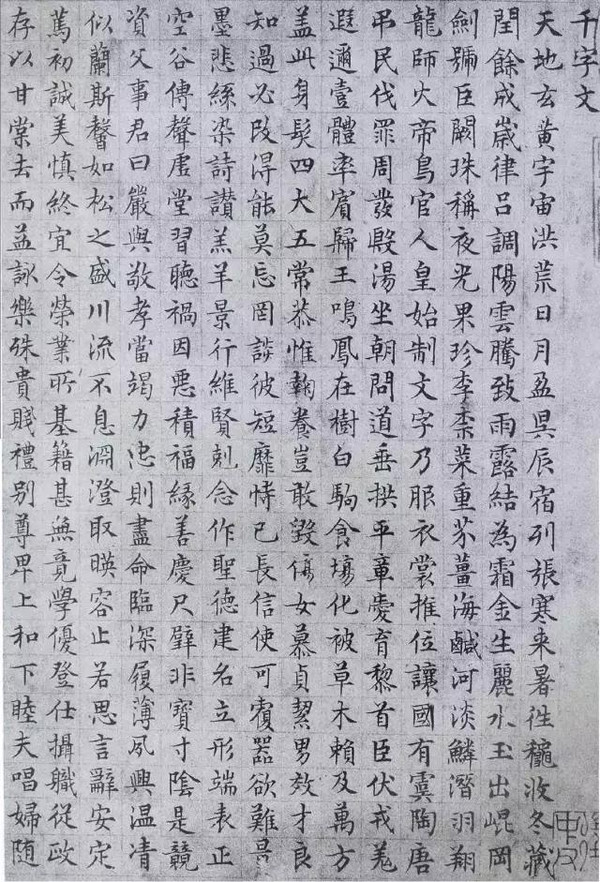 千字文
天地玄黃宇宙洪荒日月盈昃辰宿列張寒来暑往穐收冬藏
閏餘成歲律呂調陽雲騰致雨露結為霜金生麗水玉出崐岡
劍號巨闕珠稱夜光果珍李柰菜重芥薑海鹹河淡鱗潛羽翔
龍師火帝鳥官人皇始制文字乃服衣裳推位讓國有虞陶唐
弔民伐罪周發殷湯坐朝問道垂拱平章愛育黎首臣伏戎羌
遐邇壹體率賓歸王鳴鳳在樹白駒食場化被草木賴及萬方
盖此身髮四大五常恭惟鞠養豈敢毀傷女慕貞絜男效才良
知過必改得能莫忘罔談彼短靡恃己長信使可覆器欲難量
墨悲絲染詩讚羔羊景行維賢剋念作聖德建名立形端表正
空谷傳聲虛堂習聽禍因惡積福緣善慶尺璧非寶寸陰是競
資父事君曰嚴與敬孝當竭力忠則盡命臨深履薄夙興温凊
似蘭斯馨如松之盛川流不息淵澄取暎容止若思言辭安定
篤初誠美慎終宜令榮業所基籍甚無竟學優登仕攝職從政
存以甘棠去而益詠樂殊貴賤禮別尊卑上和下睦夫唱婦隨